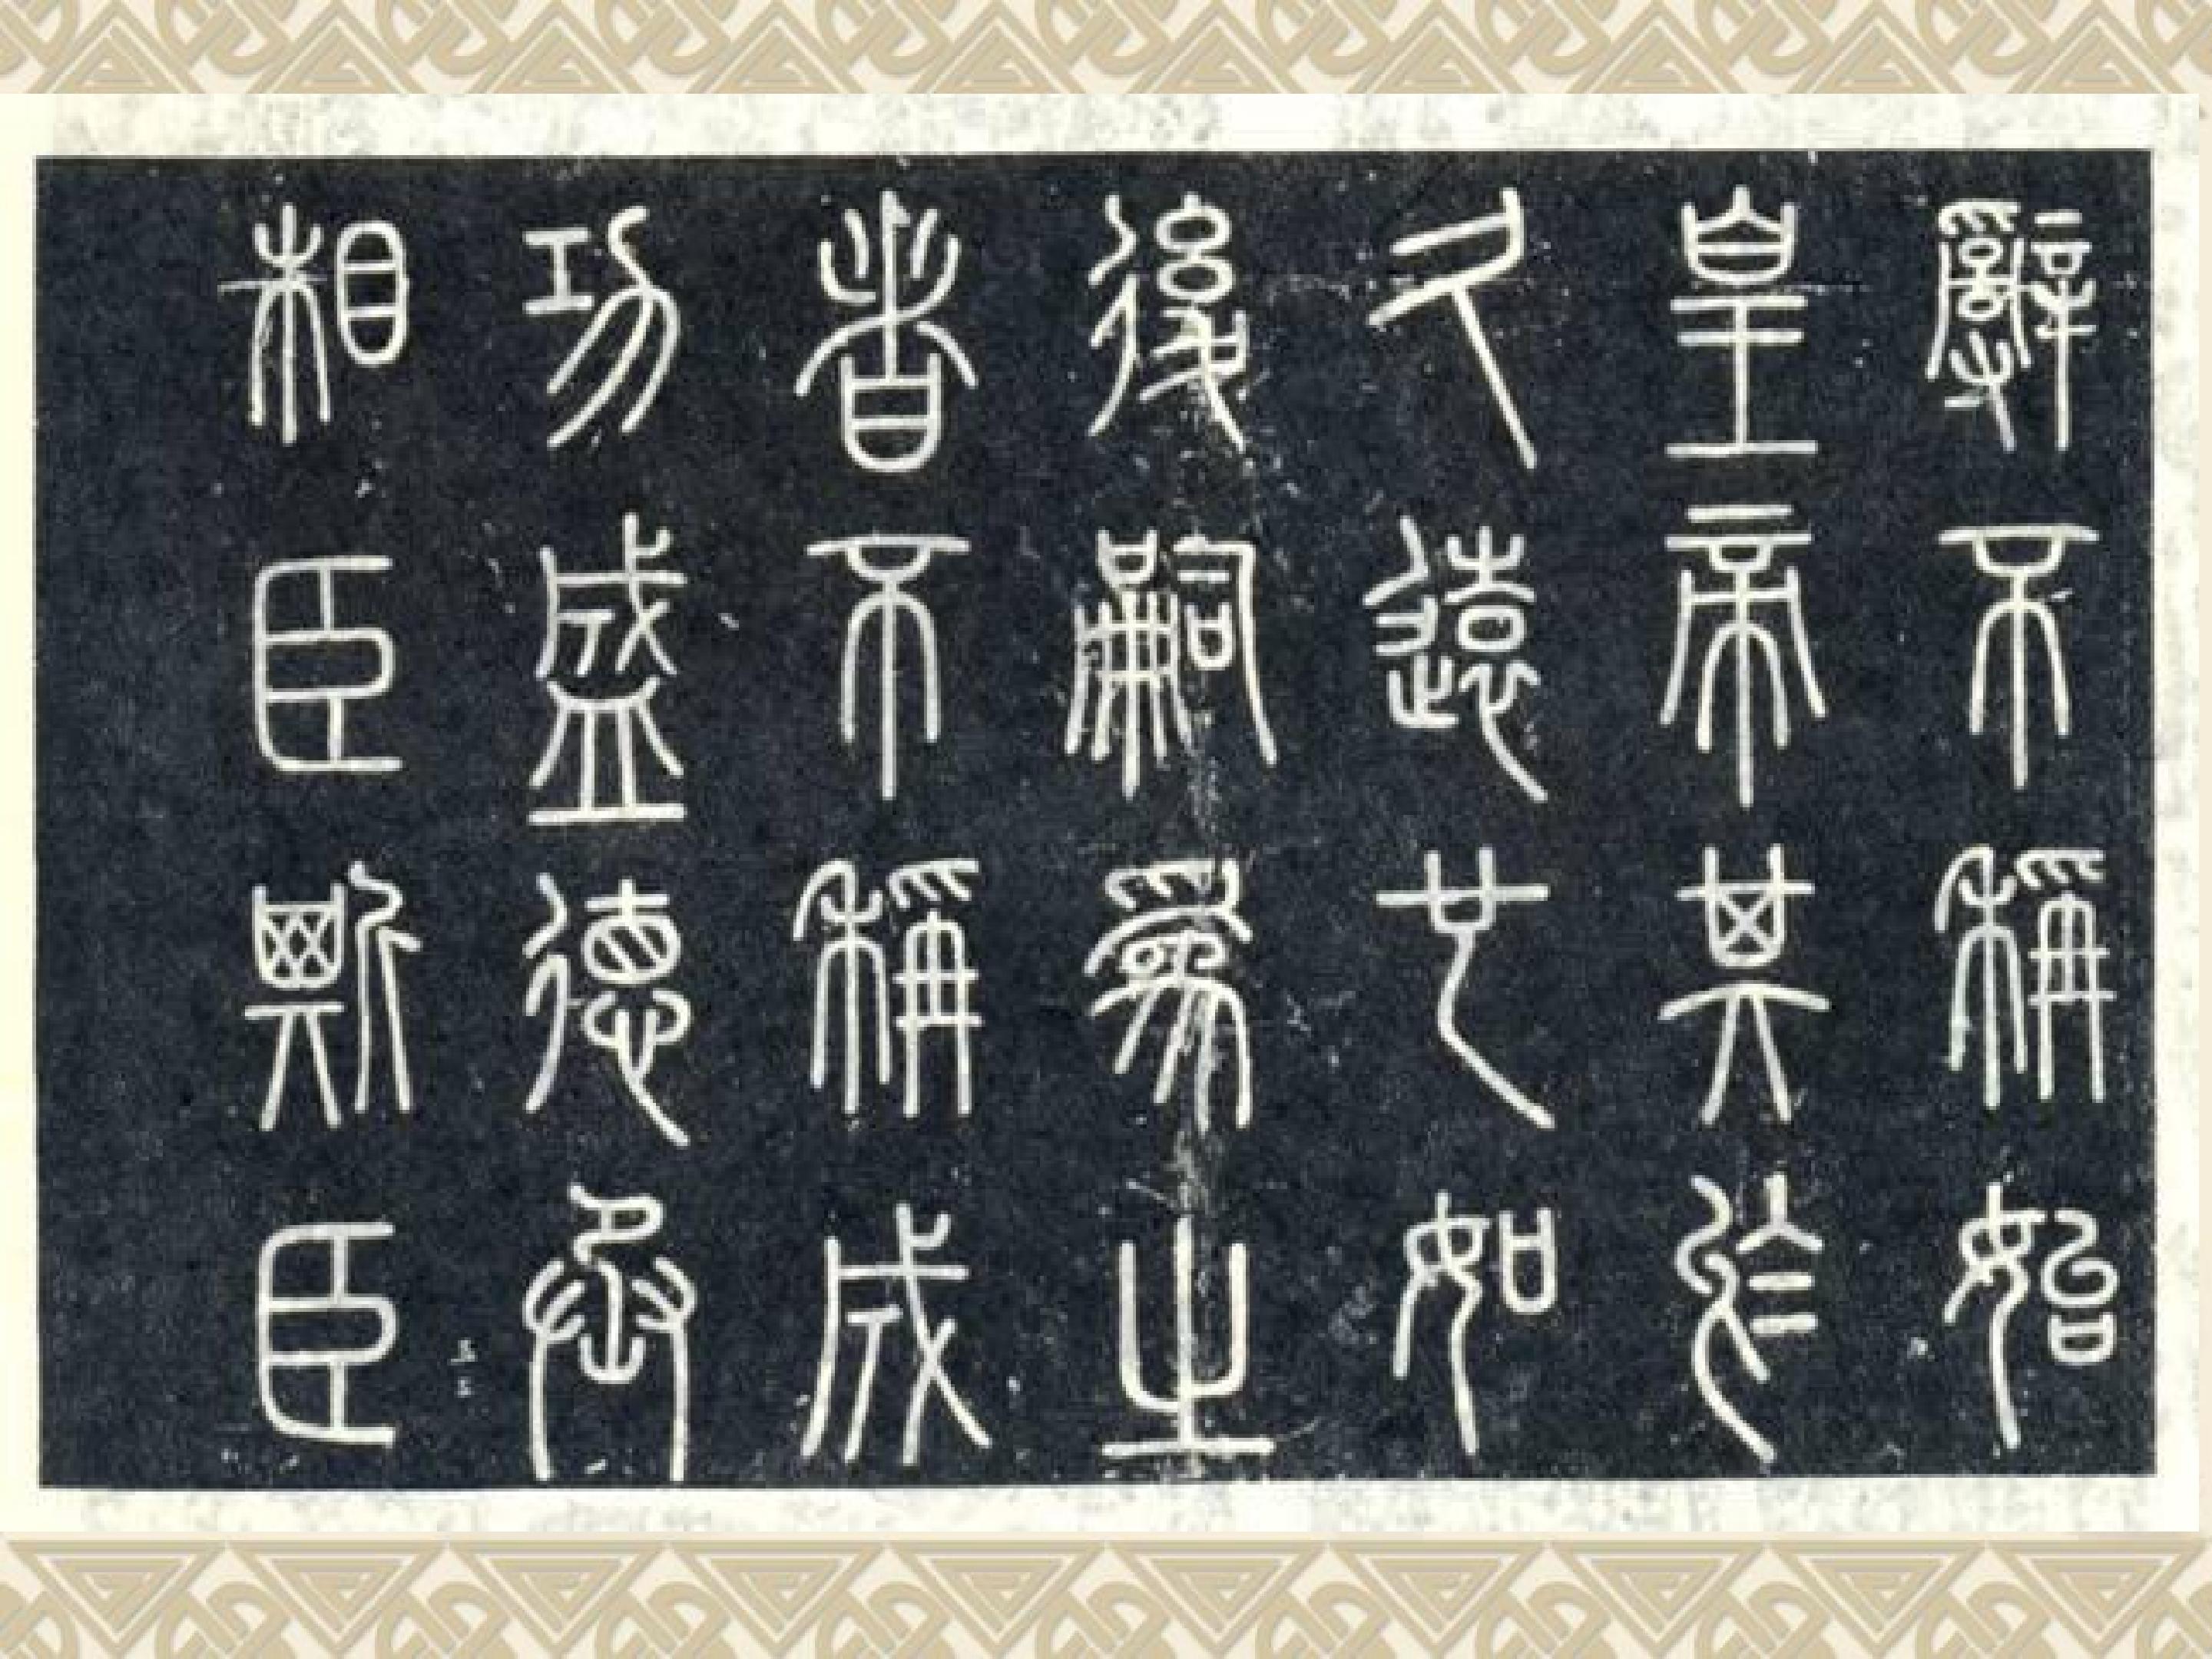 辭不稱始
皇帝其於
久遠也如
後嗣爲之
者不稱成
功盛德刻
相臣斯臣